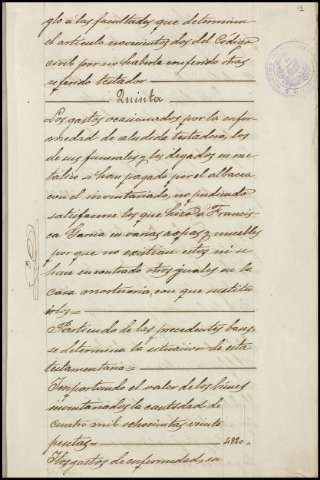 2
glo á las facultades que determina
el artículo novecientos dos del Código
civil por no haberle conferido otras
referido testador
Quinta
Los gastos ocasionados por la enfer-
medad de aludida testadora, los
de sus funerales y los legados en me-
tálico se han pagado por el albacea
con el inventariado, no pudiendo
satisfacerse los que hizo á Francis-
ca García en varias ropas y muebles
por que no existían estos ni se
han encontrado otros iguales en la
casa mortuoria, con que sustitu-
irlos=
Partiendo de las precedentes bases
se determina la situación de esta
testamentaría=
Importando el valor de los bienes
inventariados la cantidad de
cuatro mil ochocientas veinte
pesetas= 4820.
Y los gastos de enfermedad, ca